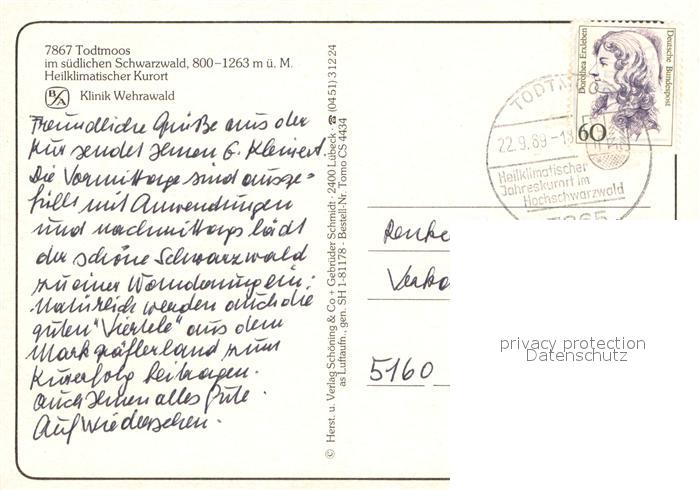 7867 Todtmoos
im südlichen Schwarzwald, 800–1263 m ü. M.
Heilklimatischer Kurort
B/A Klinik Wehrawald
Freundliche Grüße aus der
Kur sendet Ihnen G. Kleinert.
Die Vormittage sind ausge=
füllt mit Anwendungen
und nachmittags lädt
der schöne Schwarzwald
zu einer Wanderung ein;
Natürlich werden auch die
guten "Viertele" aus dem
Markgräflerland zum
Kurerfolg beitragen.
Auch Ihnen alles Gute.
Auf Wiedersehen.
© Herst. u. Verlag Schöning & Co + Gebrüder Schmidt · 2400 Lübeck · ☎ (0451) 31224
as Luftaufn., gen. SH 1-81178 · Bestell-Nr. Tomo CS 4434
Dorothea Erxleben
Deutsche Bundespost
60
TODTMOOS
22.9.89-18
Heilklimatischer
Jahreskurort im
Hochschwarzwald
Renke
Verka
5160
privacy protection
Datenschutz